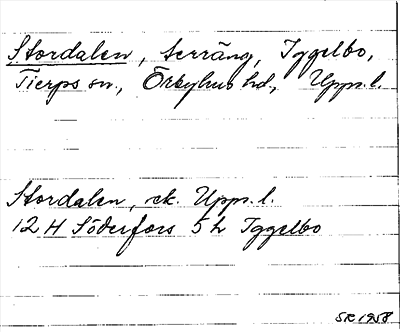 Stordalen, terräng, Iggelbo,
Tierps sn., Örbyhus hd., Upps. l.
Stordalen, ek. Upps. l.
12 H Söderfors 5 h Iggelbo
SR 1958